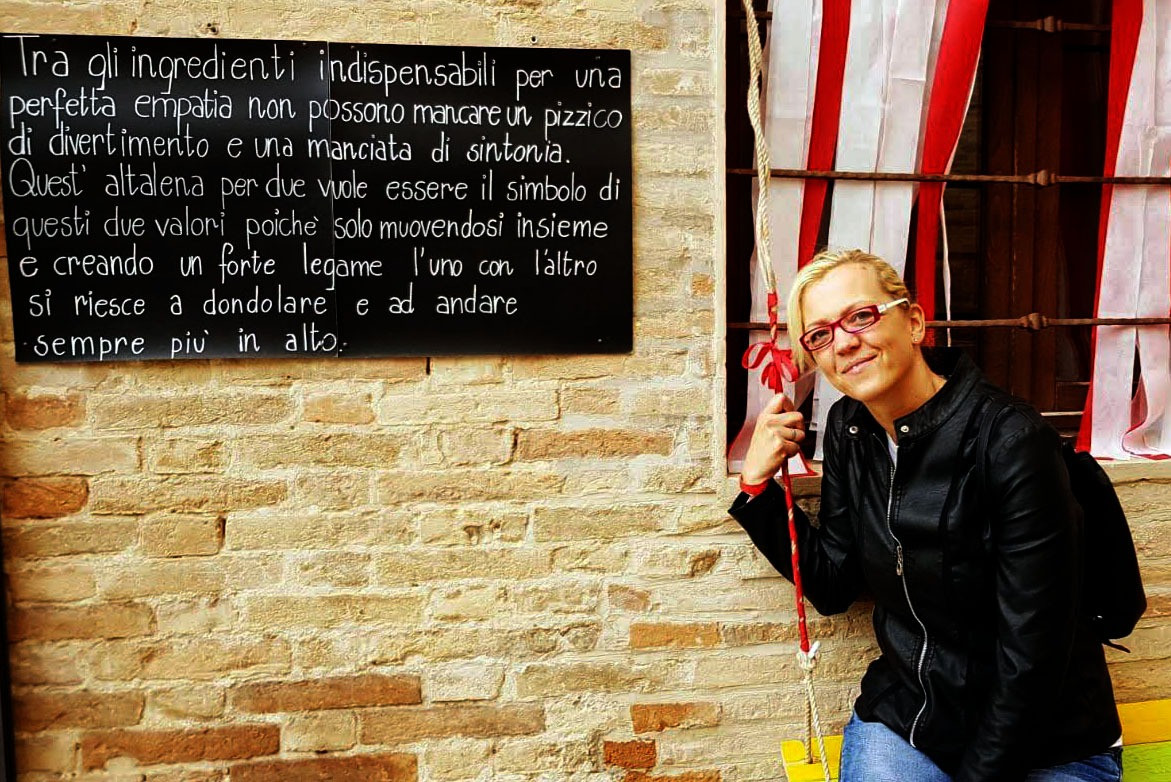 Tra gli ingredienti indispensabili per una
perfetta empatia non possono mancare un pizzico
di divertimento e una manciata di sintonia.
Quest' altalena per due vuole essere il simbolo di
questi due valori poichè solo muovendosi insieme
e creando un forte legame l'uno con l'altro
si riesce a dondolare e ad andare
sempre piu' in alto.